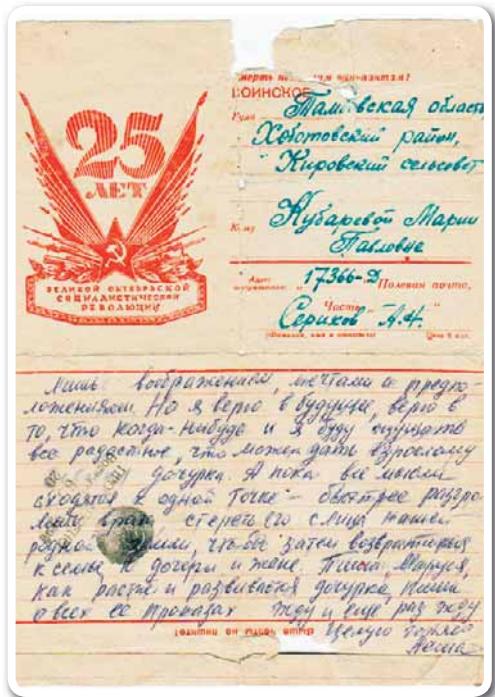 25
ЛЕТ
ВЕЛИКОЙ ОКТЯБРЬСКОЙ
СОЦИАЛИСТИЧЕСКОЙ
РЕВОЛЮЦИИ
ВОИНСКОЕ
Куда Тамбовская область
Хоботовский район,
Кировский сельсовет
Кому Кубаревой Марии
Павловне
Адрес 17366-Д Полевая почта,
Часть
Сериков А.Н.
лишь воображением, мечтами и предпо-
ложениями. Но я верю в будущее, верю в
то, что когда-нибудь и я буду ощущать
все радостное, что может дать взрослому
дочурка. А пока все мысли
сходятся к одной точке - быстрее разгро-
мить врага стереть его с лица нашей
родной земли, чтобы затем возвратиться
к семье, к дочери и жене. Пиши, Маруся,
как растет и развивается дочурка, пиши
о всех ее проказах жду и еще раз жду
Целую горячо
выше черты не пишите!